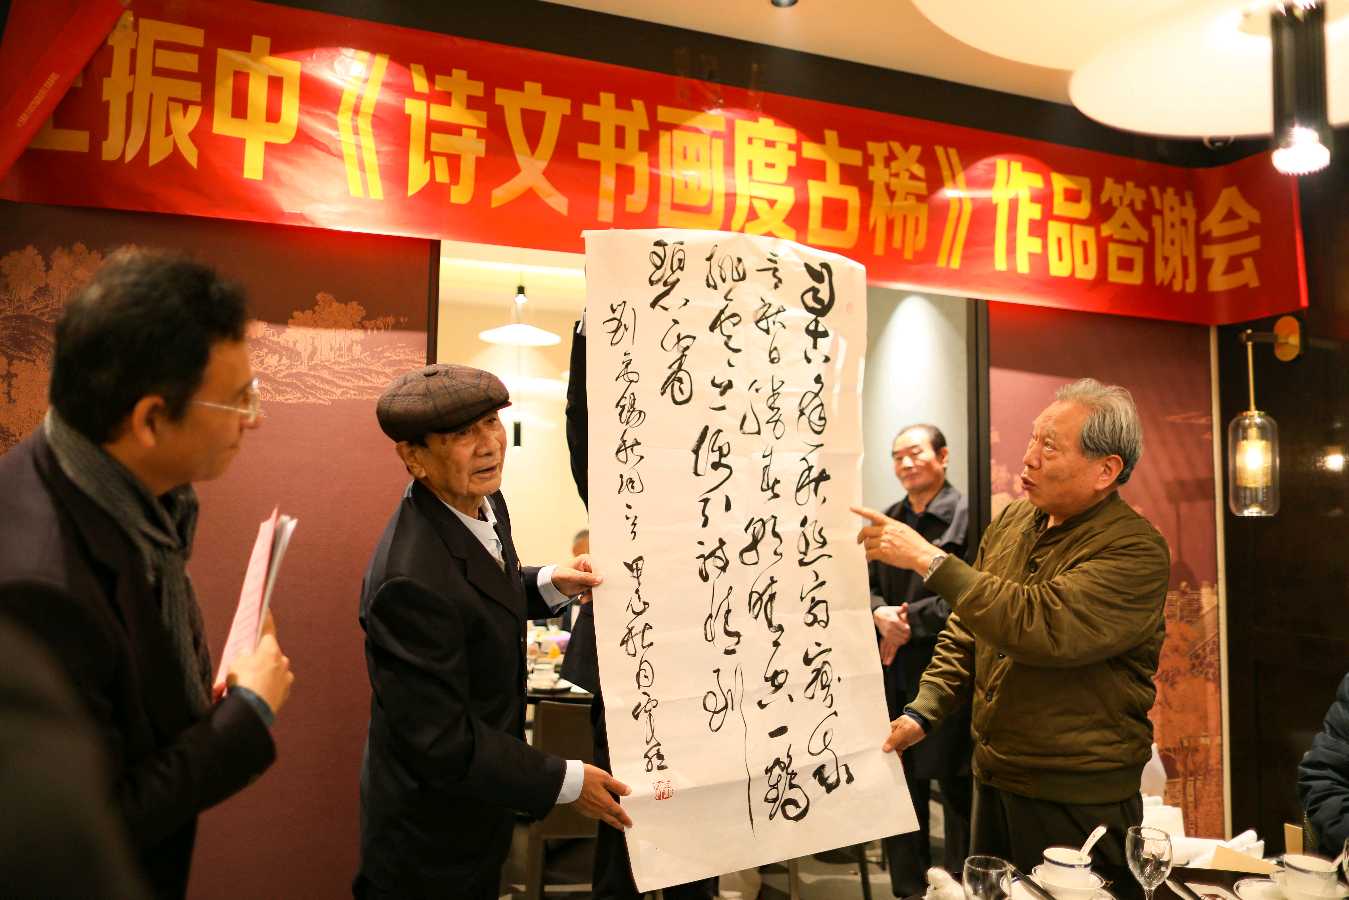 振中《诗文书画度古稀》作品答谢会
自古逢秋悲寂寥我
言秋日勝春朝晴空一鶴
排雲上便引詩情到
碧霄
劉禹錫秋詞 甲辰秋月